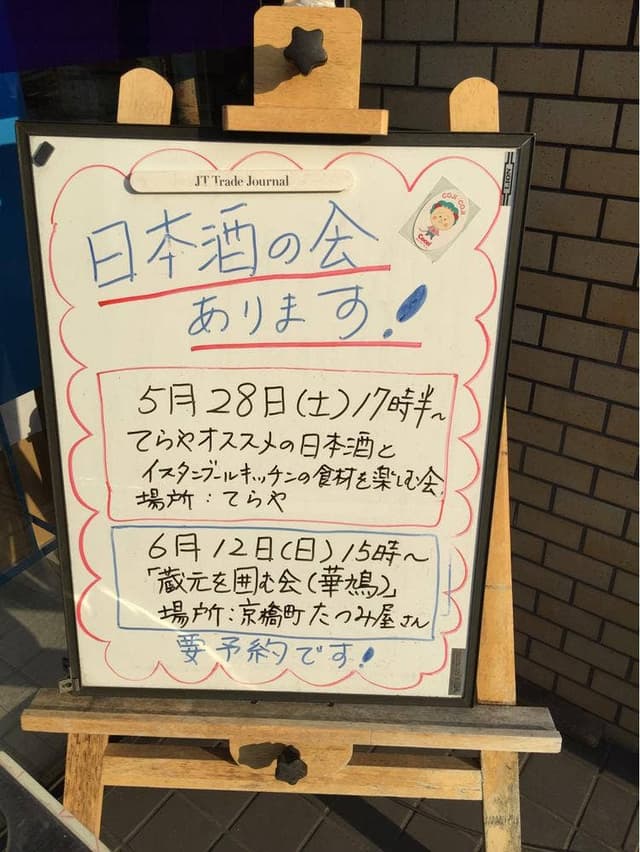 JT Trade Journal
COJI COJI
日本酒の会
あります!
5月28日(土)17時半~
てらやオススメの日本酒と
イスタンブールキッチンの食材を楽しむ会
場所:てらや
6月12日(日)15時~
「蔵元を囲む会(華鳩)」
場所:京橋町たつみ屋さん
要予約です!